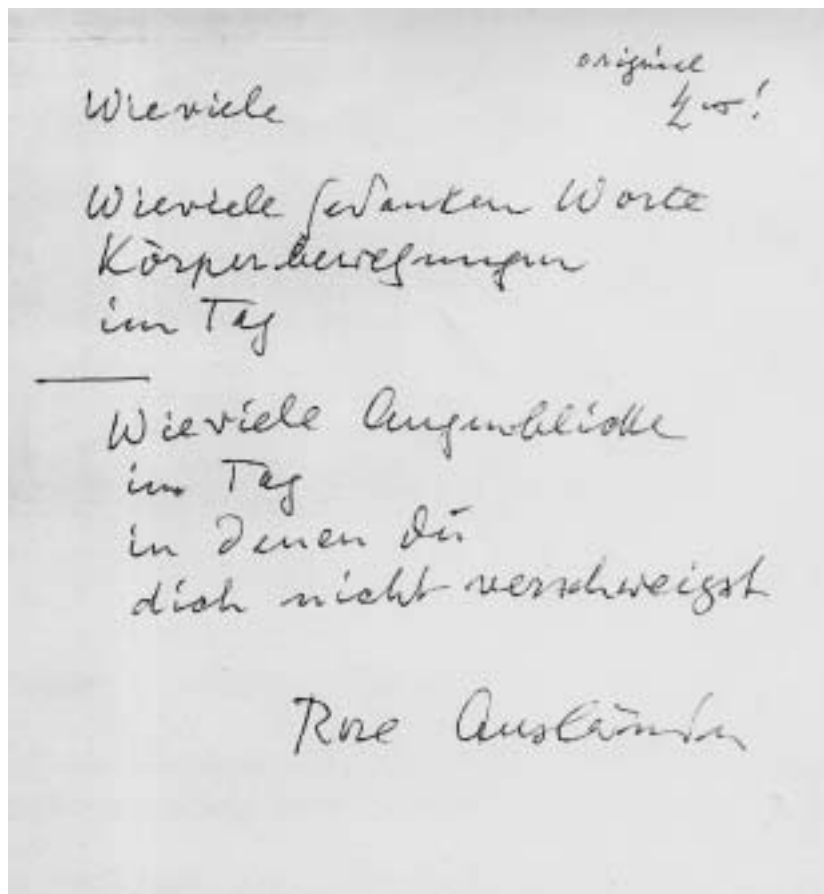 original
Wieviele
Wieviele Gedanken Worte
Körperbewegungen
im Tag
Wieviele Augenblicke
im Tag
in denen du
dich nicht verschweigst
Rose Ausländer